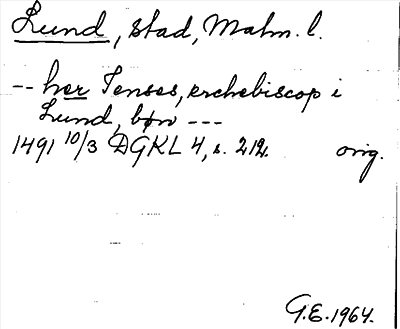 Lund, stad, Malm. l.
-- her Jenses, erchebiscop i
Lund, bøn ---
1491 10/3 DGKL 4, s. 212. orig.
G.E. 1964.